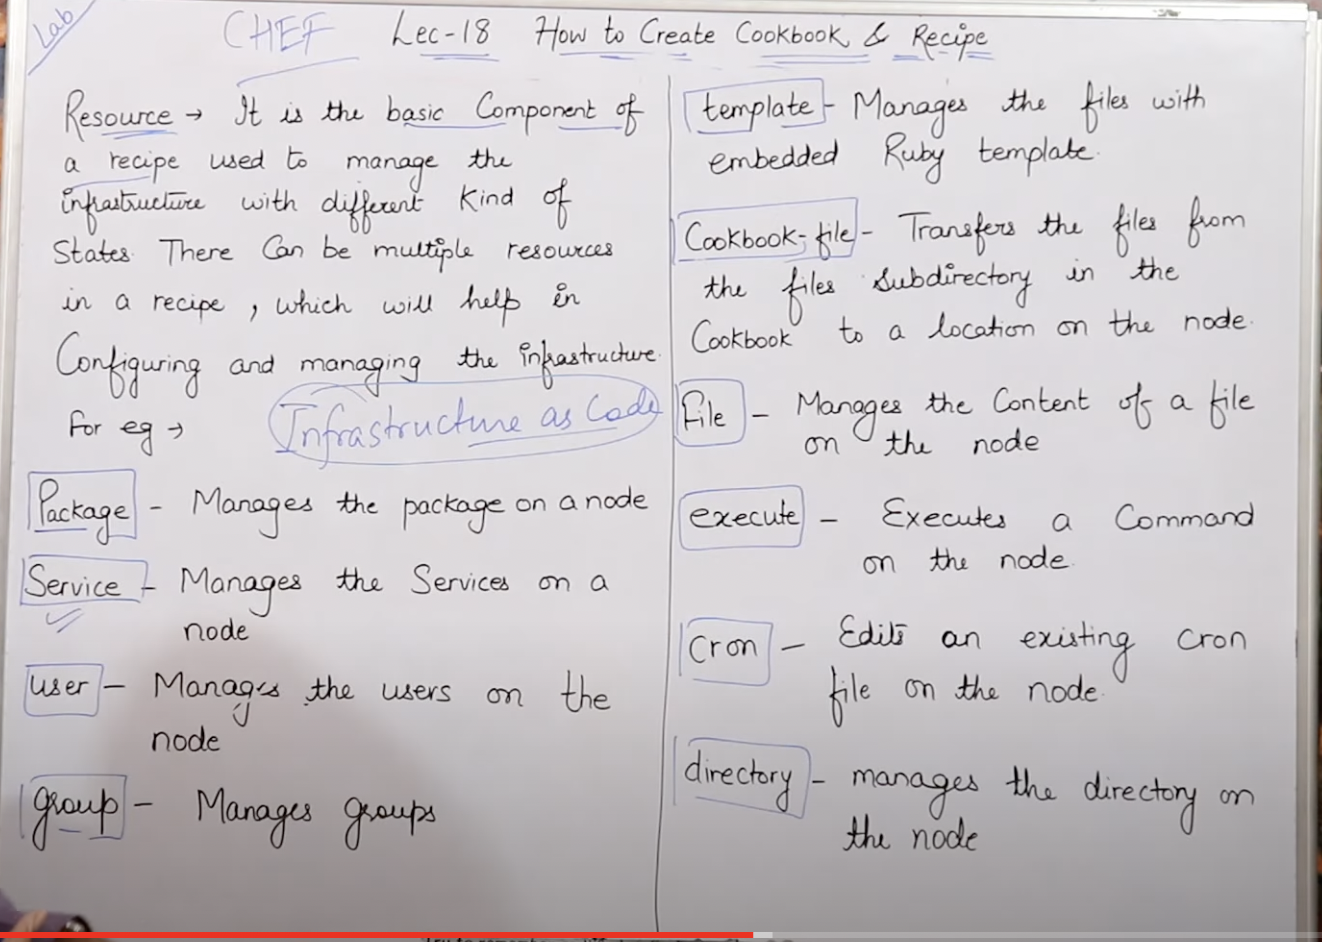 Lab
CHEF Lec-18 How to Create Cookbook & Recipe
Resource → It is the basic Component of
a recipe used to manage the
infrastructure with different Kind of
States. There Can be multiple resources
in a recipe, which will help in
Configuring and managing the infrastructure.
For eg →
Infrastructure as Code
Package - Manages the package on a node
Service - Manages the Services on a
node
user - Manages the users on the
node
group - Manages groups
template - Manages the files with
embedded Ruby template.
Cookbook-file - Transfers the files from
the files subdirectory in the
Cookbook to a location on the node.
File - Manages the Content of a file
on the node
execute - Executes a Command
on the node.
Cron - Edits an existing cron
file on the node.
directory - manages the directory on
the node